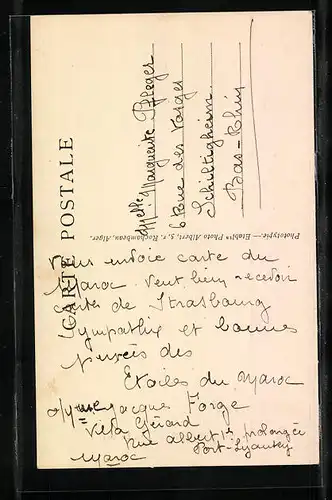 CARTE POSTALE
Melle Marguerite Pfleger
6 Rue des Vosges
Schiltigheim
Bas-Rhin
Phototypie.—Etablts Photo Albert, 3, r. Rochambeau, Alger.
Vous envoie carte du
Maroc. Veut bien recevoir
de Strasbourg
Sympathie et bonnes
pensées des
Etoiles du Maroc
Jacques Forge
Villa Gérard
Rue Albert 1er prolongée
Port-Lyautey
Maroc